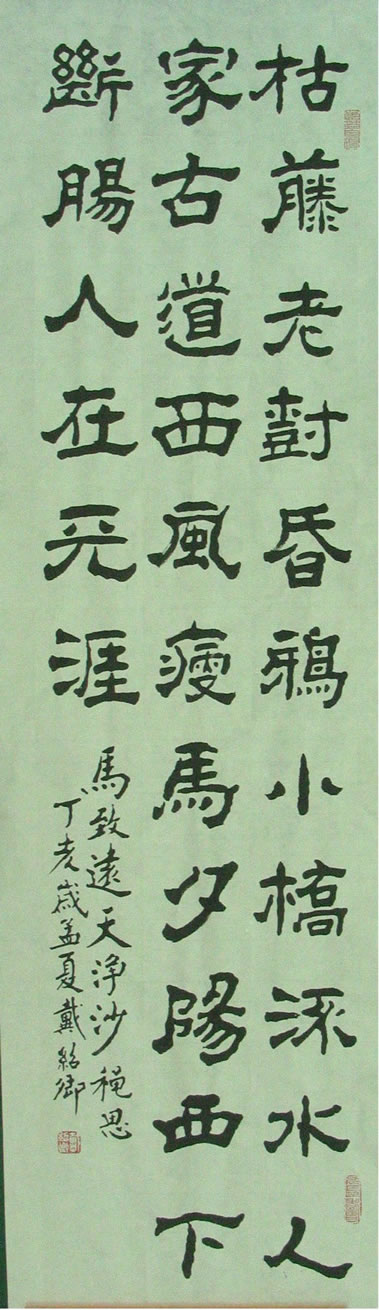 枯藤老樹昏鴉小橋流水人
家古道西風瘦馬夕陽西下
斷腸人在天涯
馬致遠天淨沙秋思
丁亥歲孟夏戴紹卿